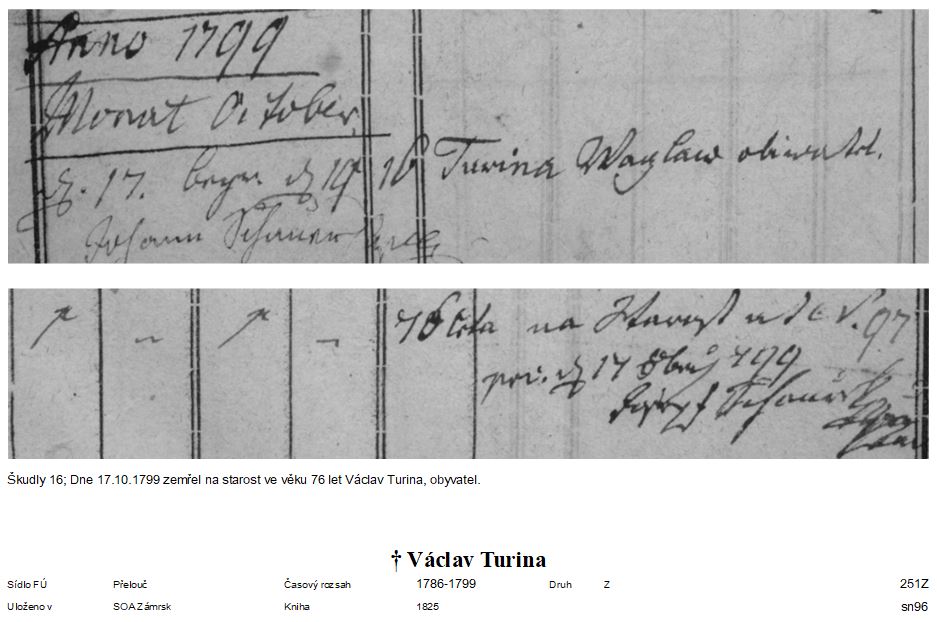 Anno 1799
Monat October
d. 17. begr. d 19 16 Turina Waglaw obiwatel.
Johann Schauer
76 leta na Starost
17 8bris 799
Joseph
Škudly 16; Dne 17.10.1799 zemřel na starost ve věku 76 let Václav Turina, obyvatel.
† Václav Turina
Sídlo FÚ Přelouč Časový rozsah 1786-1799 Druh Z 251Z
Uloženo v SOA Zámrsk Kniha 1825 sn96